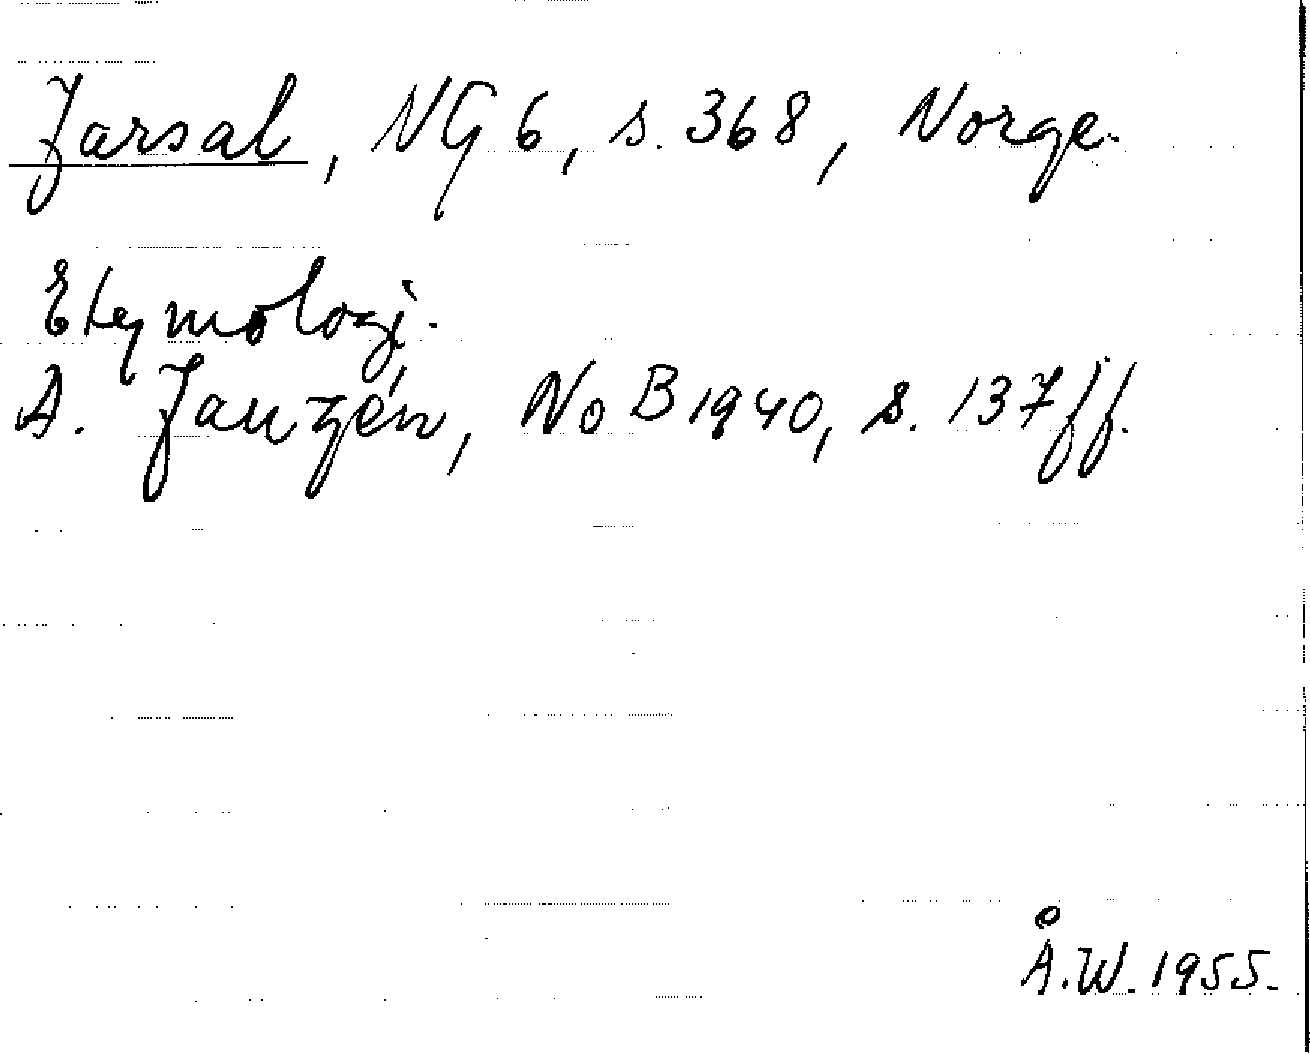 Jarsal, NG 6, s. 368, Norge.
Etymologi.
A. Janzén, NoB 1940, s. 137 ff.
Å.W. 1955.